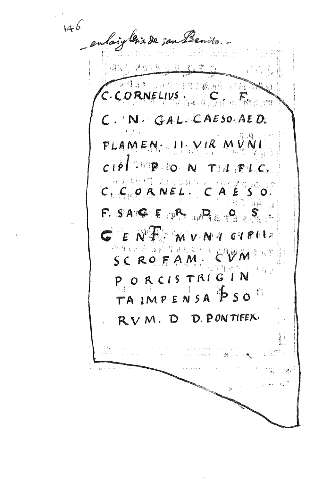 146
en la iglesia de san Benito.
C. CORNELIUS. C. F.
C. N. GAL. CAESO. AED.
FLAMEN. II VIR MVNI
CIPI. PONTIFIC.
C. CORNEL. CAESO.
F. SACERDOS
GENT. MVNICIPII
SCROFAM. CVM
PORCIS TRIGIN
TA IMPENSA IPSO
RVM. D D. PONTIFEX.